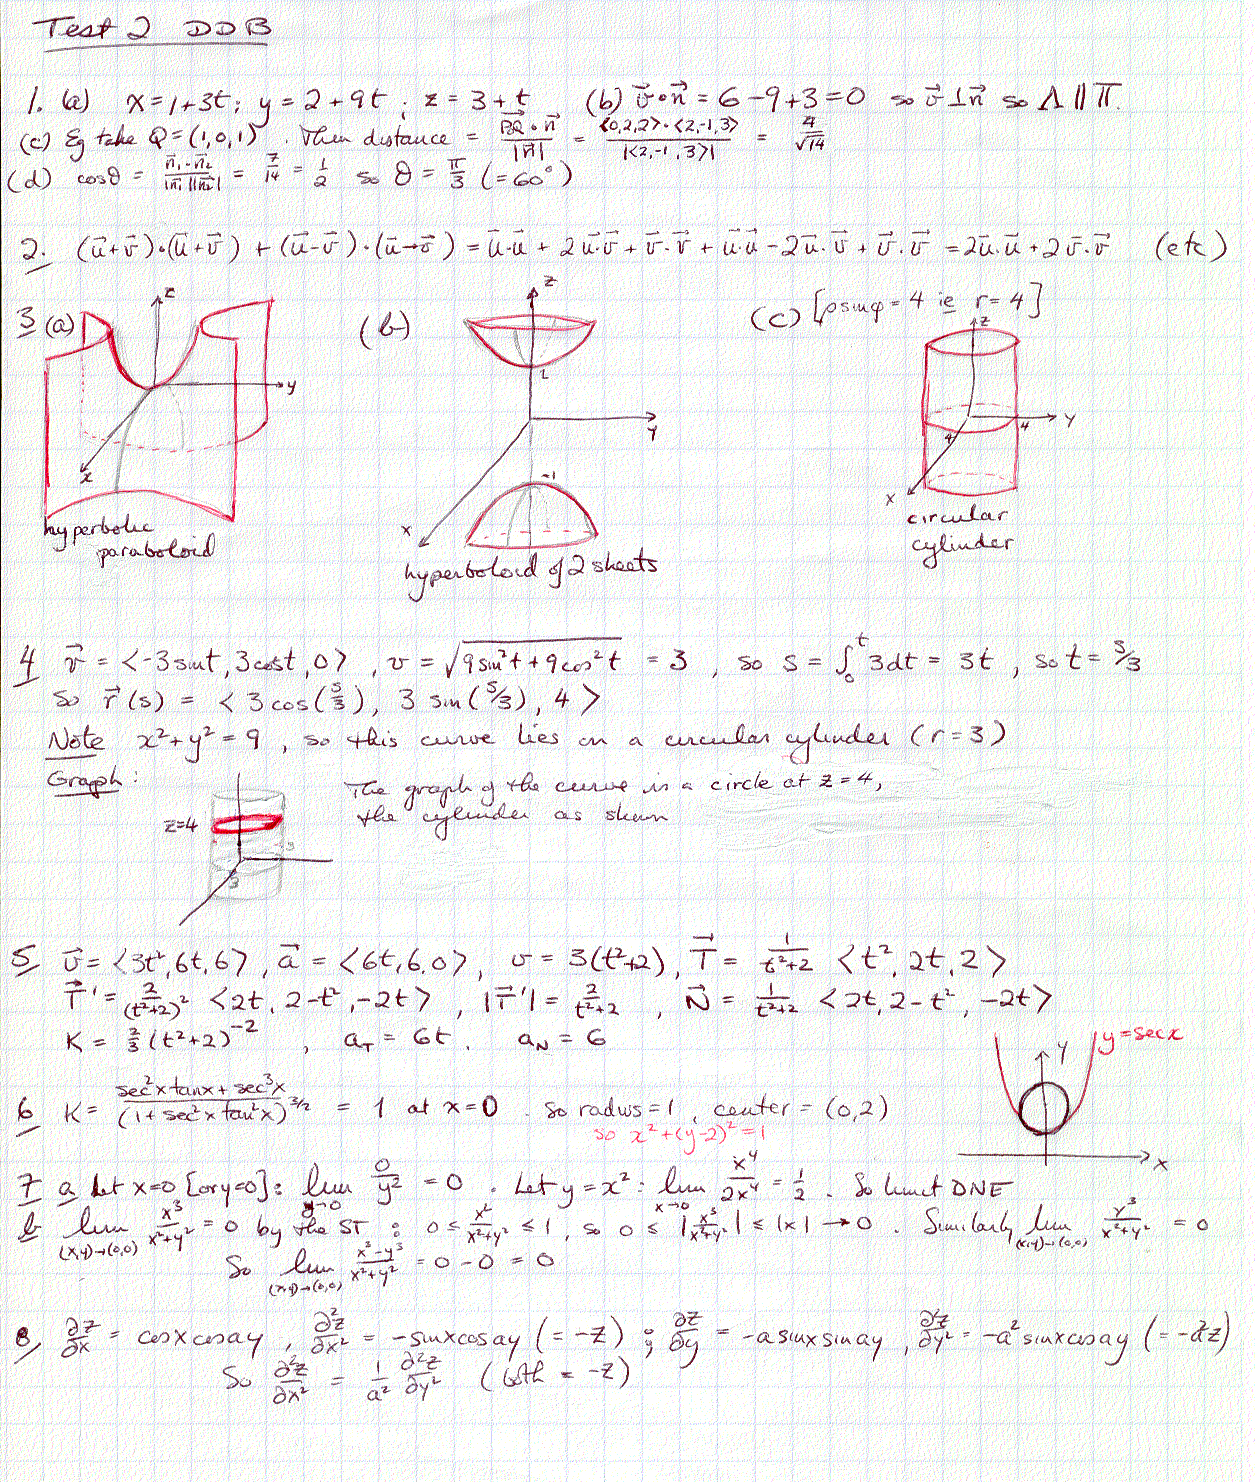 Test 2 DDB
1. (a) x = 1+3t ; y = 2+9t ; z = 3+t (b) v⃗•n⃗ = 6-9+3=0 so v⃗⊥n⃗ so Λ∥Π.
(c) Eg take Q=(1,0,1). Then distance = PQ⃗•n⃗/|n⃗| = <0,2,2>·<2,-1,3>/|<2,-1,3>| = 4/√14
(d) cosθ = n⃗₁·n⃗₂/|n⃗₁||n⃗₂| = 7/14 = 1/2 so θ = π/3 (=60°)
2. (u⃗+v⃗)•(u⃗+v⃗) + (u⃗-v⃗)•(u⃗-v⃗) = u⃗·u⃗ + 2u⃗·v⃗ + v⃗·v⃗ + u⃗·u⃗ - 2u⃗·v⃗ + v⃗·v⃗ = 2u⃗·u⃗ + 2v⃗·v⃗ (etc)
3 (a) z y x
hyperbolic
paraboloid
(b) z 1 y -1 x
hyperboloid of 2 sheets
(c) [ρsinφ = 4 ie r = 4]
z y 4 4 x
circular
cylinder
4 v⃗ = <-3sint, 3cost, 0>, v = √(9sin²t + 9cos²t) = 3, so s = ∫₀ᵗ 3dt = 3t, so t = s/3
So r⃗(s) = <3cos(s/3), 3 sin(s/3), 4>
Note x²+y² = 9, so this curve lies on a circular cylinder (r=3)
Graph: The graph of the curve is a circle at z=4,
the cylinder as shown
z=4 3 3
5 v⃗ = <3t², 6t, 6>, a⃗ = <6t, 6, 0>, v = 3(t²+2), T⃗ = 1/(t²+2) <t², 2t, 2>
T⃗' = 2/(t²+2)² <2t, 2-t², -2t>, |T⃗'| = 2/(t²+2), N⃗ = 1/(t²+2) <2t, 2-t², -2t>
K = 2/3 (t²+2)⁻², a_T = 6t, a_N = 6
y=secx y x
6 K = (sec²x tanx + sec³x)/(1+sec²x tan²x)^3/2 = 1 at x=0. So radius=1, center = (0,2)
so x²+(y-2)²=1
7 a Let x=0 [or y=0]: lim y→0 0/y² = 0. Let y=x²: lim x→0 x⁴/2x⁴ = 1/2. So limit DNE
b lim (x,y)→(0,0) x³/(x²+y²) = 0 by the ST: 0 ≤ x²/(x²+y²) ≤ 1, so 0 ≤ |x³/(x²+y²)| ≤ |x| → 0. Similarly lim (x,y)→(0,0) y³/(x²+y²) = 0
So lim (x,y)→(0,0) (x³-y³)/(x²+y²) = 0 - 0 = 0
8, ∂z/∂x = cosx cosay, ∂²z/∂x² = -sinx cosay (= -z); ∂z/∂y = -a sinx sinay, ∂²z/∂y² = -a² sinx cosay (= -a²z)
So ∂²z/∂x² = 1/a² ∂²z/∂y² (both = -z)